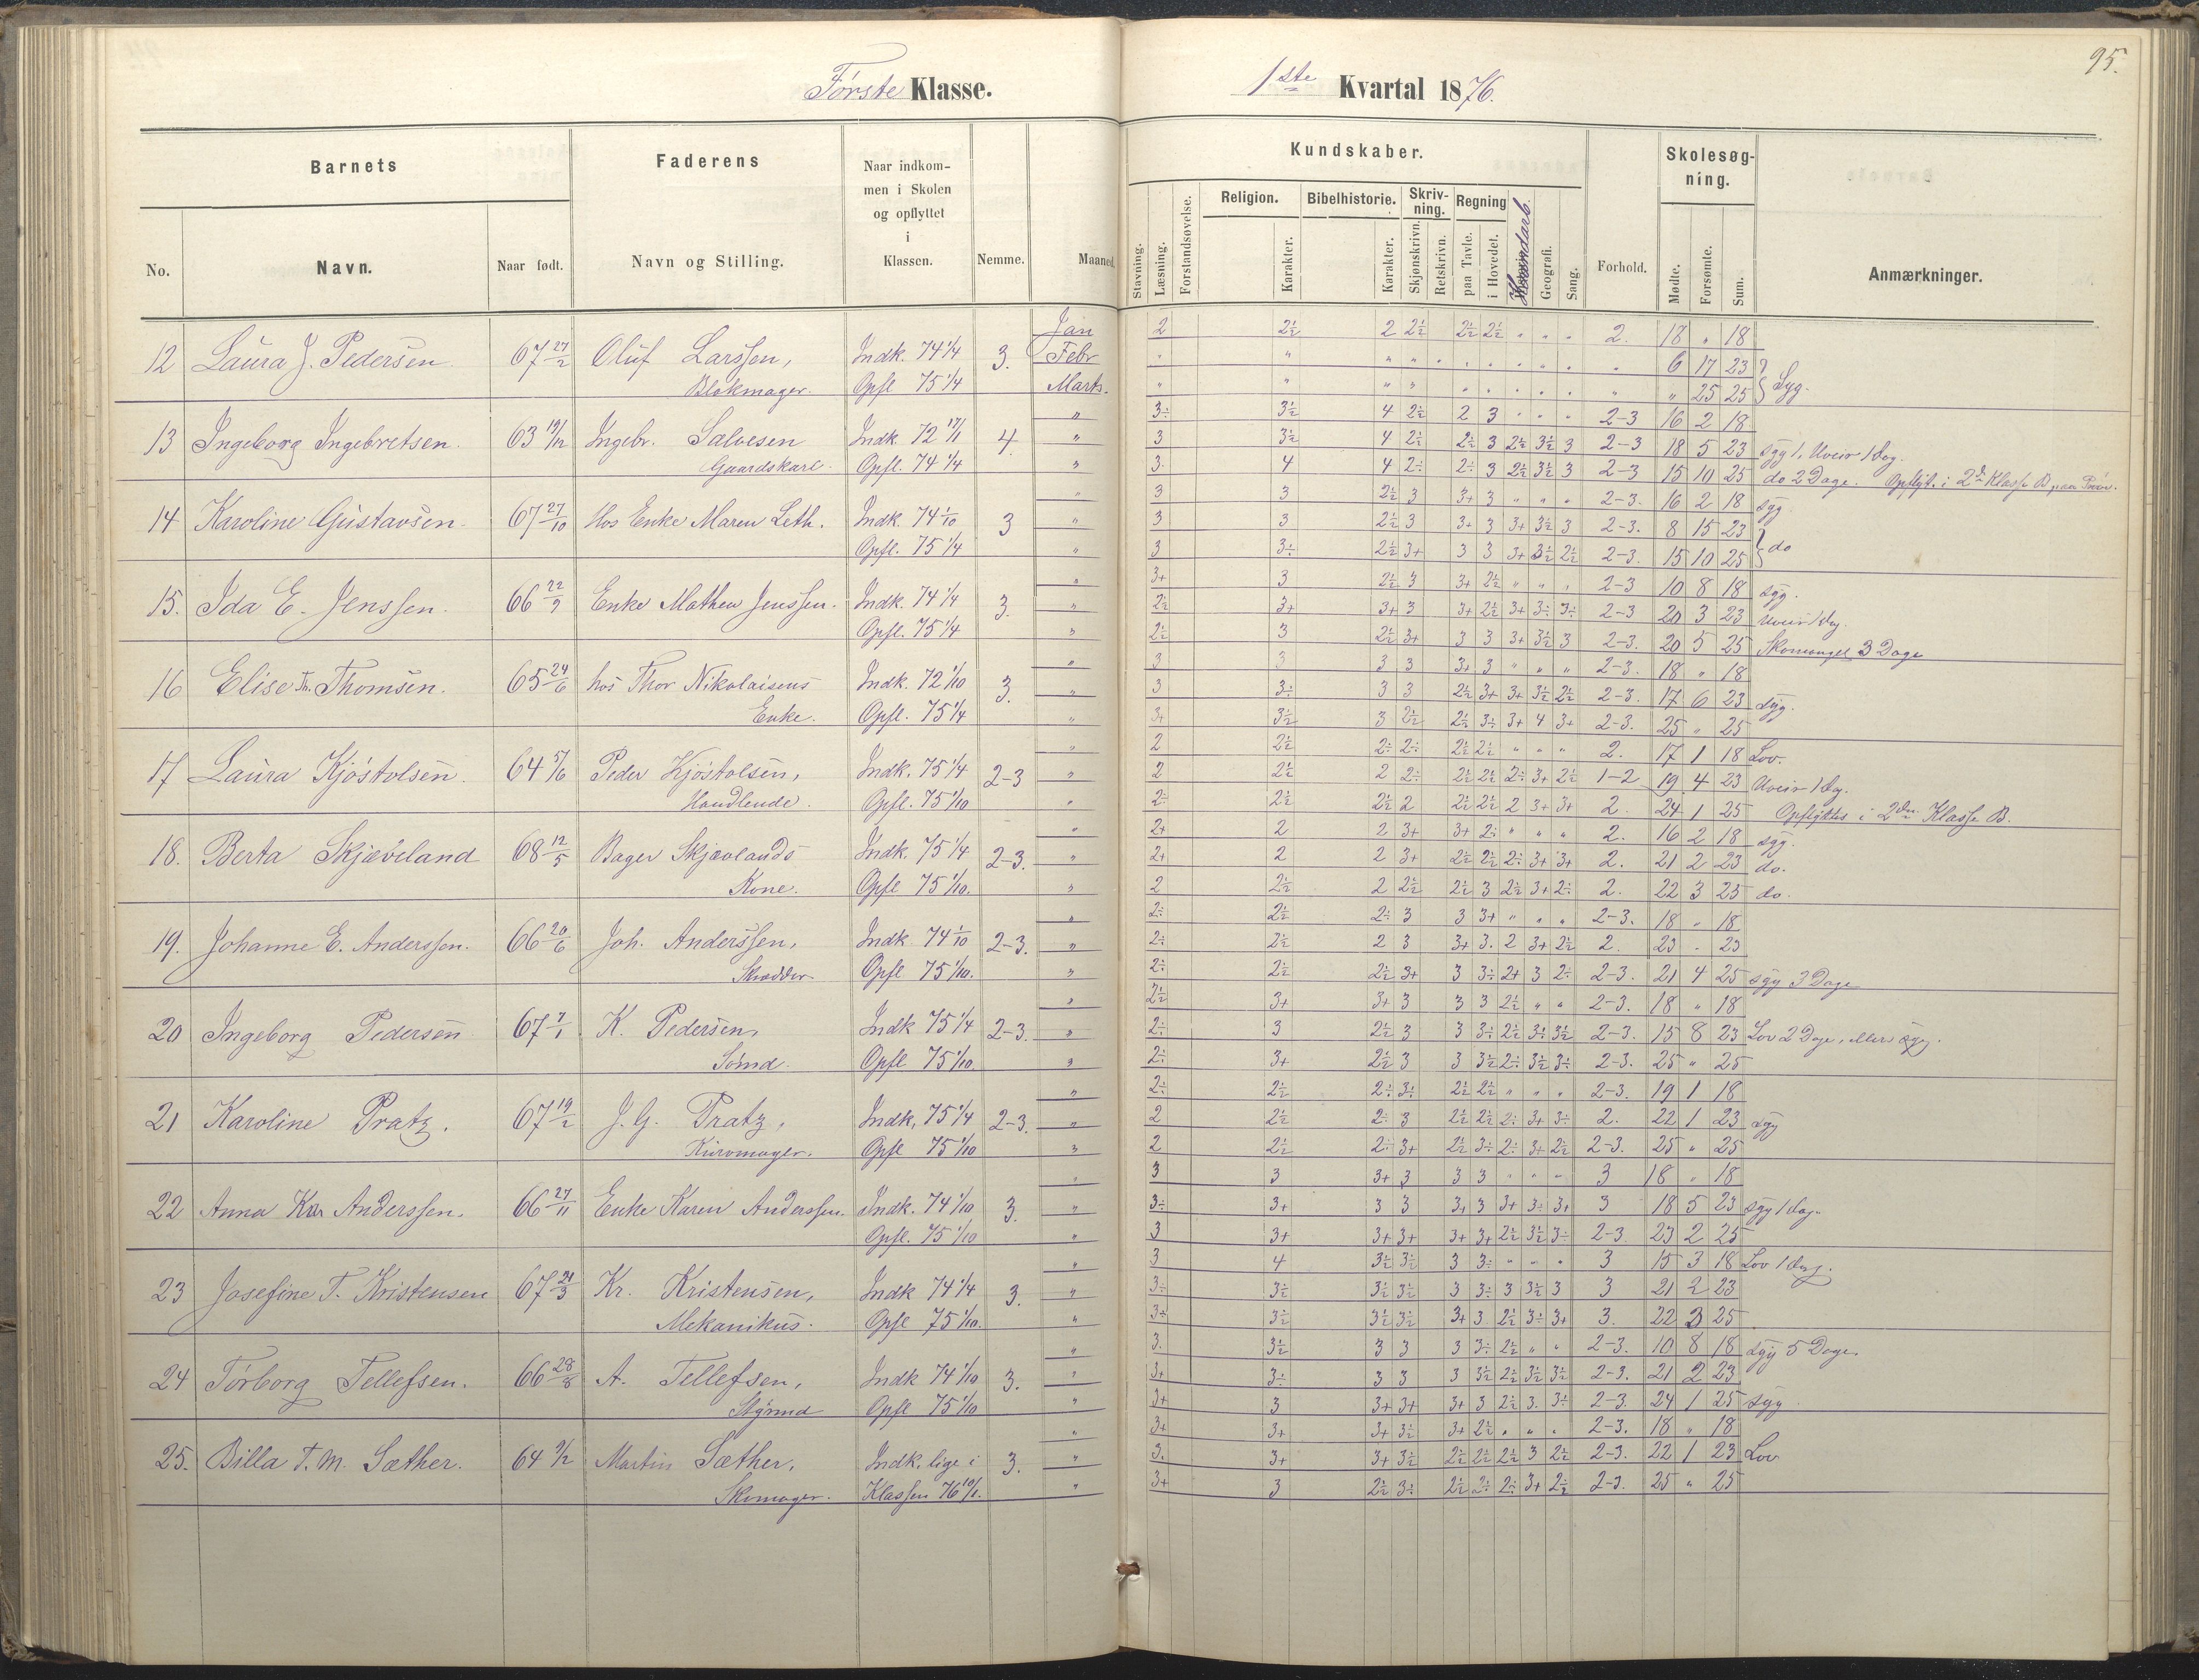 95.
Første Klasse. 1ste Kvartal 1876.
Barnets
Faderens
Naar indkommen i Skolen og opflyttet i Klassen.
Nemme.
Maaned.
Kundskaber.
Skolesøgning.
No.
Navn.
Naar født.
Navn og Stilling.
Stavning.
Læsning.
Forstandsøvelse.
Religion.
Karakter.
Bibelhistorie.
Karakter.
Skrivning.
Skjønskrivn.
Retskrivn.
Regning
paa Tavle.
i Hovedet.
Geografi.
Sang.
Forhold.
Mødte.
Forsømte.
Sum.
Anmærkninger.
12 Laura J. Pedersen. 67 27/2 Oluf Larssen, Indk. 74 1/4 3. Jan 2 2½ 2 2½ 2½ 2½ " " " 2. 18 " 18
Febr 6 17 23
Blokmager. Opfl 75 1/4 Marts. " 25 25 Syg.
13 Ingeborg Ingebretsen. 63 19/12 Ingebr. Salvesen Indk 72 17/1 4. " 3÷ 3½ 4 2½ 2 3 " " " 2-3 16 2 18
" 3 3½ 4 2½ 2½ 3 2½ 3½ 3 2-3 18 5 23 syg 1, Uveir 1 Dag.
Gaardskarl. Opfl. 74 1/4 " 3. 4 4 2÷ 2÷ 3 2½ 3½ 3 2-3 15 10 25 do 2 Dage. Opflyt. i 2d Klasse B
14 Karoline Gustavsen. 67 27/10 Hos Enke Maren Leth. Indk. 74 1/10 3 " 3 3 2½ 3 3+ 3 " " " 2-3. 16 2 18 syg
" 3 3 2½ 3 3+ 3 3+ 3½ 3 2-3. 8 15 23
Opfl. 75 1/4 " 3 3÷ 2½ 3+ 3 3 3+ 3½ 2½ 2-3. 15 10 25 do
15. Ida E. Jenssen. 66 22/9 Enke Mathea Jenssen. Indk. 74 1/4 3. " 3+ 3 2½ 3 3+ 2½ " " " 2-3 10 8 18 syg.
" 2½ 3+ 3+ 3 3+ 2½ 3+ 3÷ 3÷ 2-3 20 3 23 uveir 1 dag.
Opfl. 75 1/4 " 2½ 3 2½ 3+ 3 3 3+ 3½ 3 2-3. 20 5 25 Skomangel 3 Dage
16 Elise Th. Thomsen. 65 24/6 hos Thor Nikolaisens Indk. 72 1/10 3. " 3 3 3 3 3+ 3 " " " 2-3. 18 " 18
" 3 3÷ 3 3 2½ 3+ 3+ 3½ 2½ 2-3. 17 6 23 syg.
Enke. Opfl. 75 1/4 " 3+ 3½ 3 2½ 2½ 3÷ 3+ 4 3+ 2-3. 25 " 25
17 Laura Kjøstolsen. 64 5/6 Peder Kjøstolsen, Indk. 75 1/4 2-3 " 2 2½ 2÷ 2÷ 2½ 2½ " " " 2. 17 1 18 Lov.
" 2 2½ 2 2÷ 2½ 2½ 2÷ 3+ 2½ 1-2 19 4 23 Uveir 1 dag.
Handlende. Opfl. 75 1/10 " 2÷ 2½ 2½ 2 2½ 2½ 2 3+ 3+ 2. 24 1 25 Opflyttes i 2den Klasse B.
18. Berta Skjæveland 68 12/5 Bager Skjævlands Indk. 75 1/4 2-3. " 2+ 2 2 3+ 3+ 2÷ " " " 2. 16 2 18 syg.
" 2+ 2 2 3+ 2½ 2½ 2÷ 3+ 3+ 2. 21 2 23 do.
Kone. Opfl 75 1/10. " 2 2½ 2 2½ 2½ 3 2½ 3+ 2÷ 2. 22 3 25 do.
19. Johanne E. Anderssen. 66 20/6 Joh. Anderssen, Indk. 74 1/10 2-3. " 2÷ 2½ 2÷ 3 3 3+ " " " 2-3. 18 " 18
" 2÷ 2½ 2 3 3+ 3. 2 3+ 2½ 2. 23 - 23
Skrædder. Opfl 75 1/10. " 2÷ 2½ 2½ 3+ 3 3÷ 2+ 3 2÷ 2-3. 21 4 25 syg 3 Dage
20 Ingeborg Pedersen 67 7/1 K. Pedersen, Indk 75 1/4 2-3. " 2½ 3+ 3+ 3 3 3 2½ " " 2-3. 18 " 18
" 2÷ 3 2½ 3 3 3÷ 2½ 3÷ 3½ 2-3. 15 8 23 Lov 2 Dage, ellers syg.
Sømd. Opfl 75 1/10. " 2÷ 3+ 2½ 3 3 3½ 2÷ 3½ 3÷ 2-3. 25 " 25
21 Karoline Pratz. 67 19/2 J. G. Pratz, Indk, 75 1/4 2-3. " 2÷ 2½ 2÷ 3÷ 2½ 2½ " " " 2-3. 19 1 18
" 2 2½ 2÷ 3 2½ 2½ 2÷ 3+ 3÷ 2. 22 1 23 syg
Kurvmager. Opfl 75 1/10 " 2 2½ 2÷ 3+ 2½ 3÷ 2÷ 3+ 2½ 2-3. 25 " 25
22 Anna Kar Anderssen. 66 27/11 Enke Karen Anderssen. Indk. 74 1/10 3. " 3 3 3+ 3 3 3 " " " 3 18 " 18
" 3÷ 3+ 3 3 3+ 3 3+ 3÷ 3+ 3 18 5 23 syg 1 dag.
Opfl. 75 1/10 " 3 3+ 3+ 3+ 3+ 3+ 2½ 3½ 3÷ 2-3 23 2 25
23 Josefine T. Kristensen 67 21/3 Kr. Kristensen, Indk 74 1/4 3. " 3 4 3½ 3½ 3 3÷ " " " 3 15 3 18 Lov 1 dag.
" 3÷ 3½ 3½ 3½ 3 3÷ 3 3½ 3 3 21 2 23
Mekanikus. Opfl 75 1/10. " 3÷ 3½ 3½ 3½ 3+ 3 2½ 3÷ 3+ 3. 22 3 25
24 Torborg Tellefsen. 66 28/8 A. Tellefsen, Indk 74 1/10 3. " 3. 3½ 3 3 3 3÷ 2½ " " 2-3. 10 8 18 syg 5 Dage.
" 3+ 3÷ 3 3 3 3½ 2½ 3½ 3½ 2-3. 21 2 23
Styrmd Opfl 75 1/10 " 3+ 3 3+ 3+ 3+ 3 2½ 3. 3÷ 2-3. 24 1 25 syg
25. Billa T. M. Sæther. 64 9/2 Martin Sæther, Indk. lige i 3. " 3+ 3+ 3+ 3½ 3+ 2½ " " " 2-3. 18 " 18
" 3. 3+ 3+ 3½ 2½ 2½ 2½ 3 2½ 2-3. 22 1 23 Lov
Skomager. Klassen 76 10/1. " 3+ 3 2½ 3÷ 2½ 2÷ 2÷ 3+ 2½ 2-3. 25 " 25